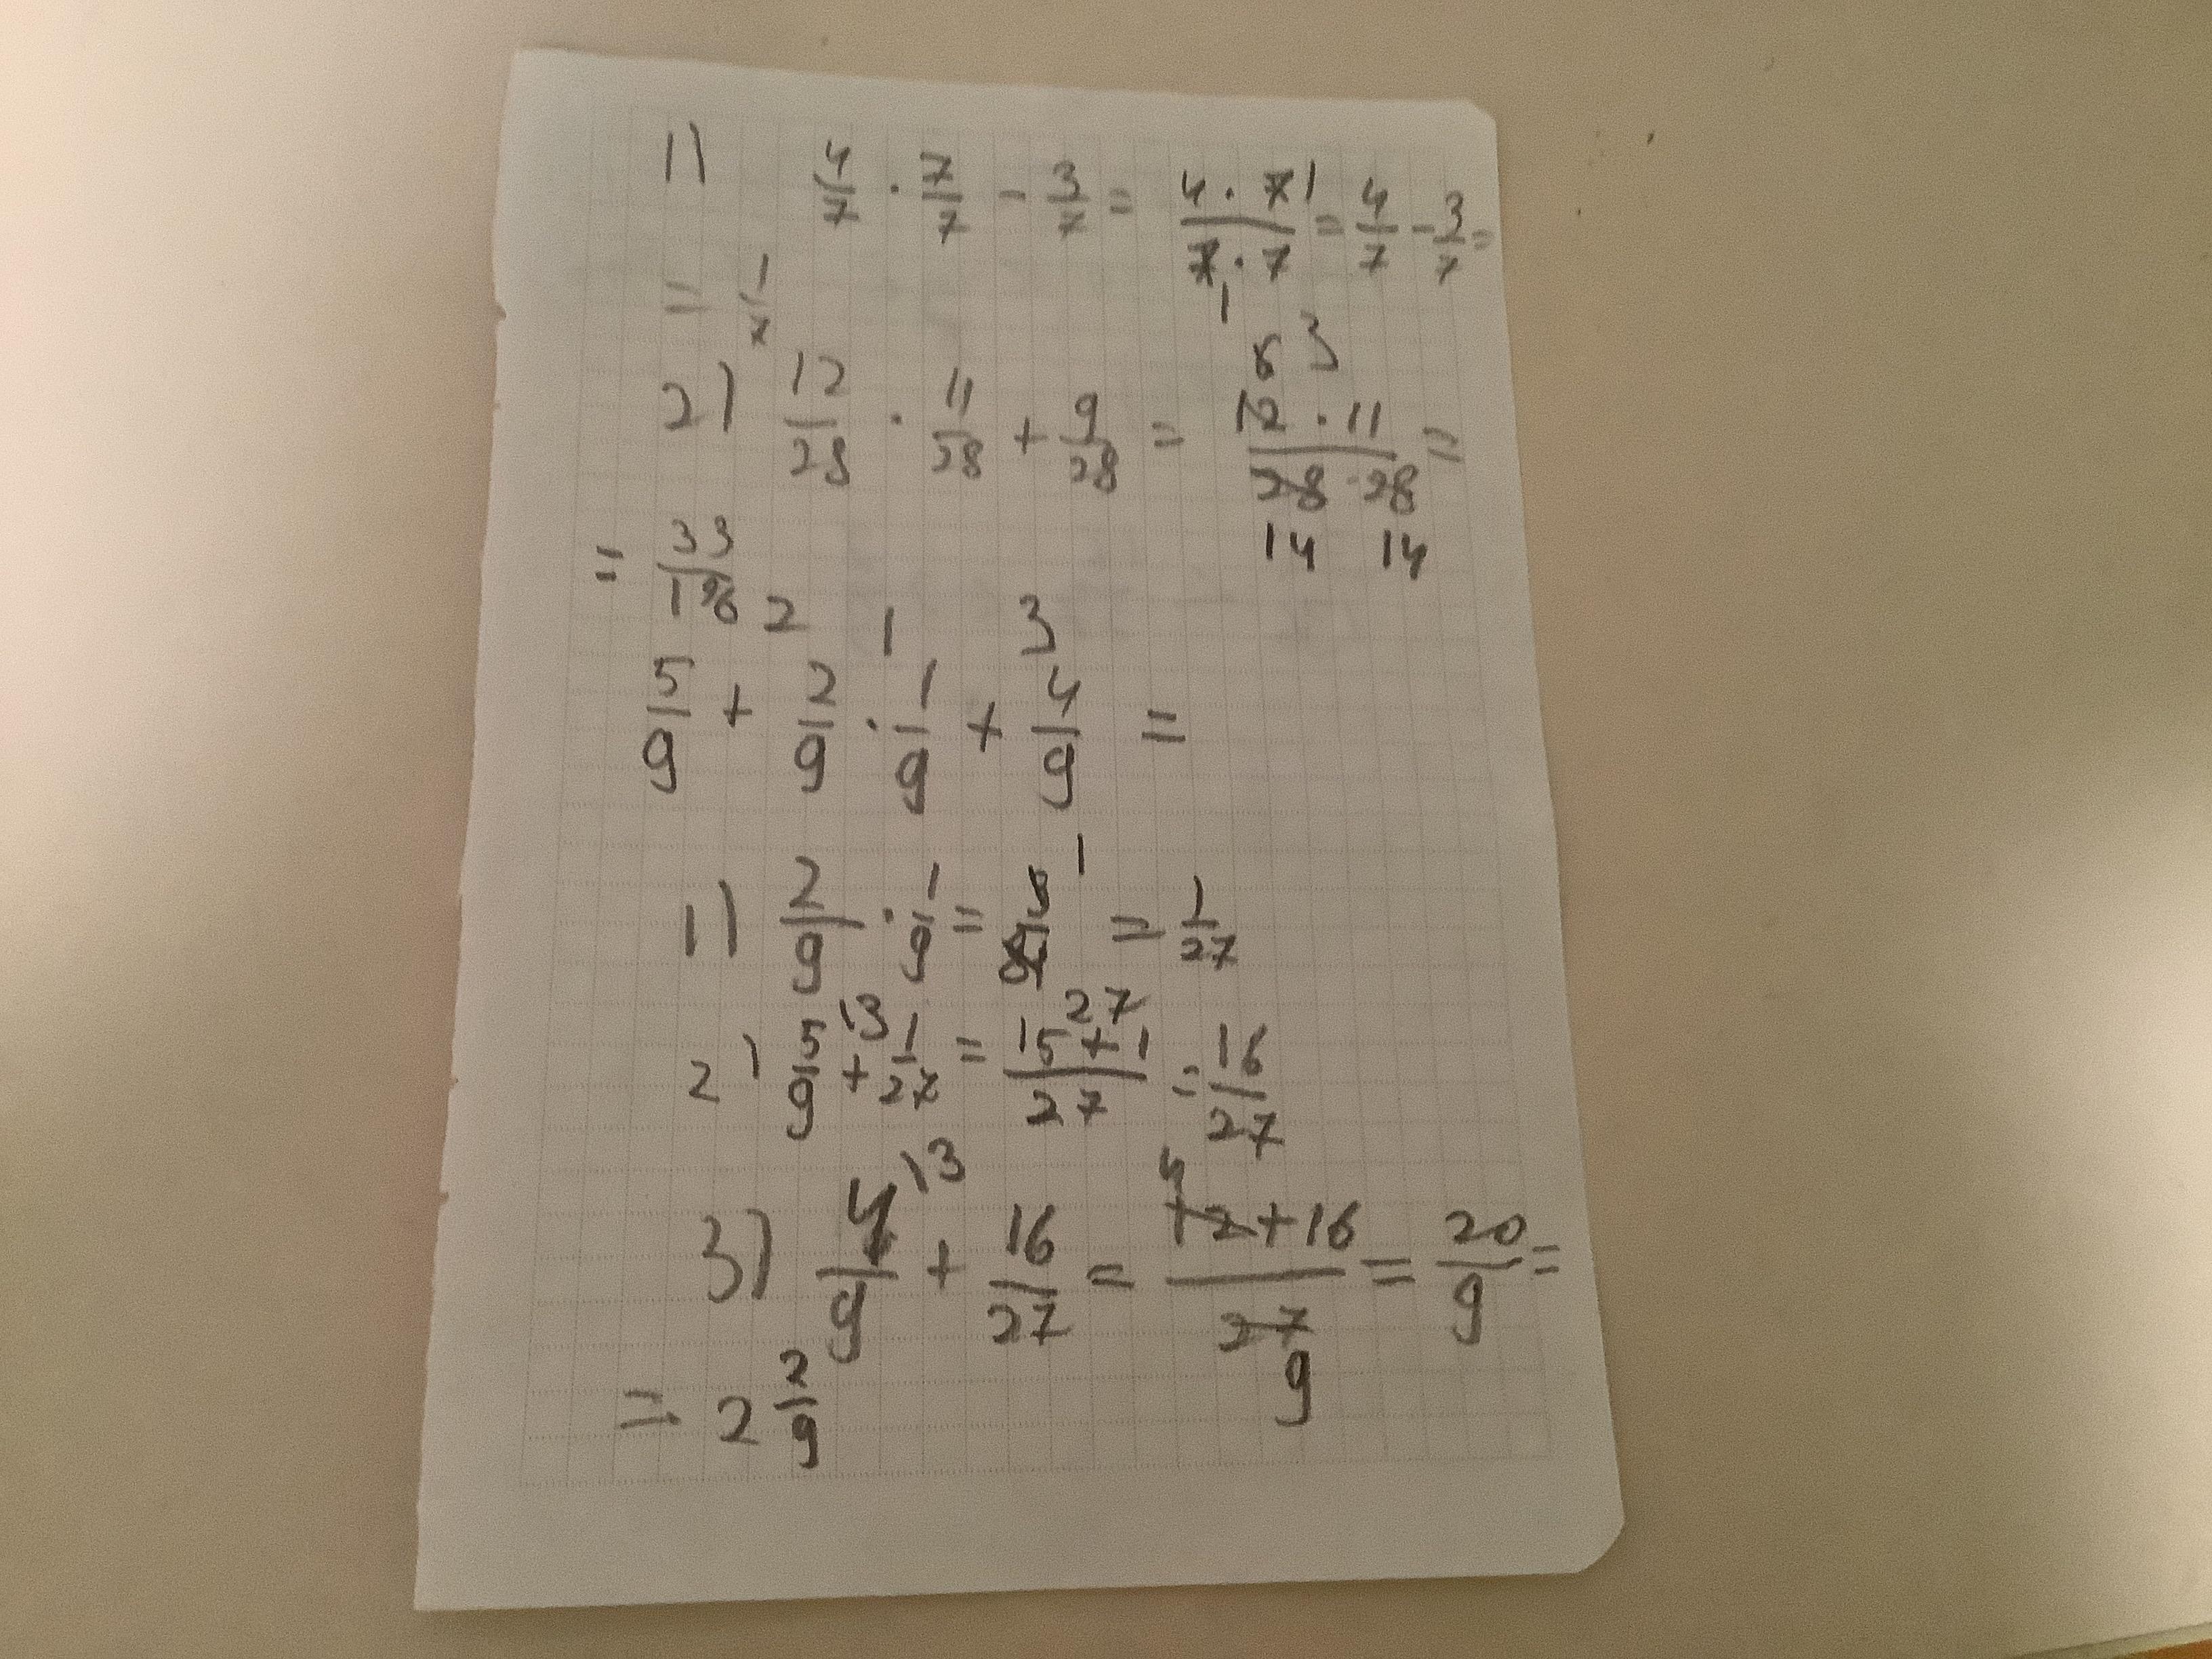 1) 4/7 · 7/7 - 3/7 = 4 · 7 1 / 7 · 7 1 = 4/7 - 3/7 =
= 1/7
6 3
2) 12/28 · 11/28 + 9/28 = 12 · 11 / 28 · 28 =
14 14
= 33/196
2 1 3
5/9 + 2/9 · 1/9 + 4/9 =
1) 2/9 · 1/9 = 3 1 / 81 = 1/27
27
2) 5/9 13 + 1/27 = 15 + 1 / 27 = 16/27
3) 4/9 13 + 16/27 = 4 12 + 16 / 27 9 = 20/9 =
= 2 2/9